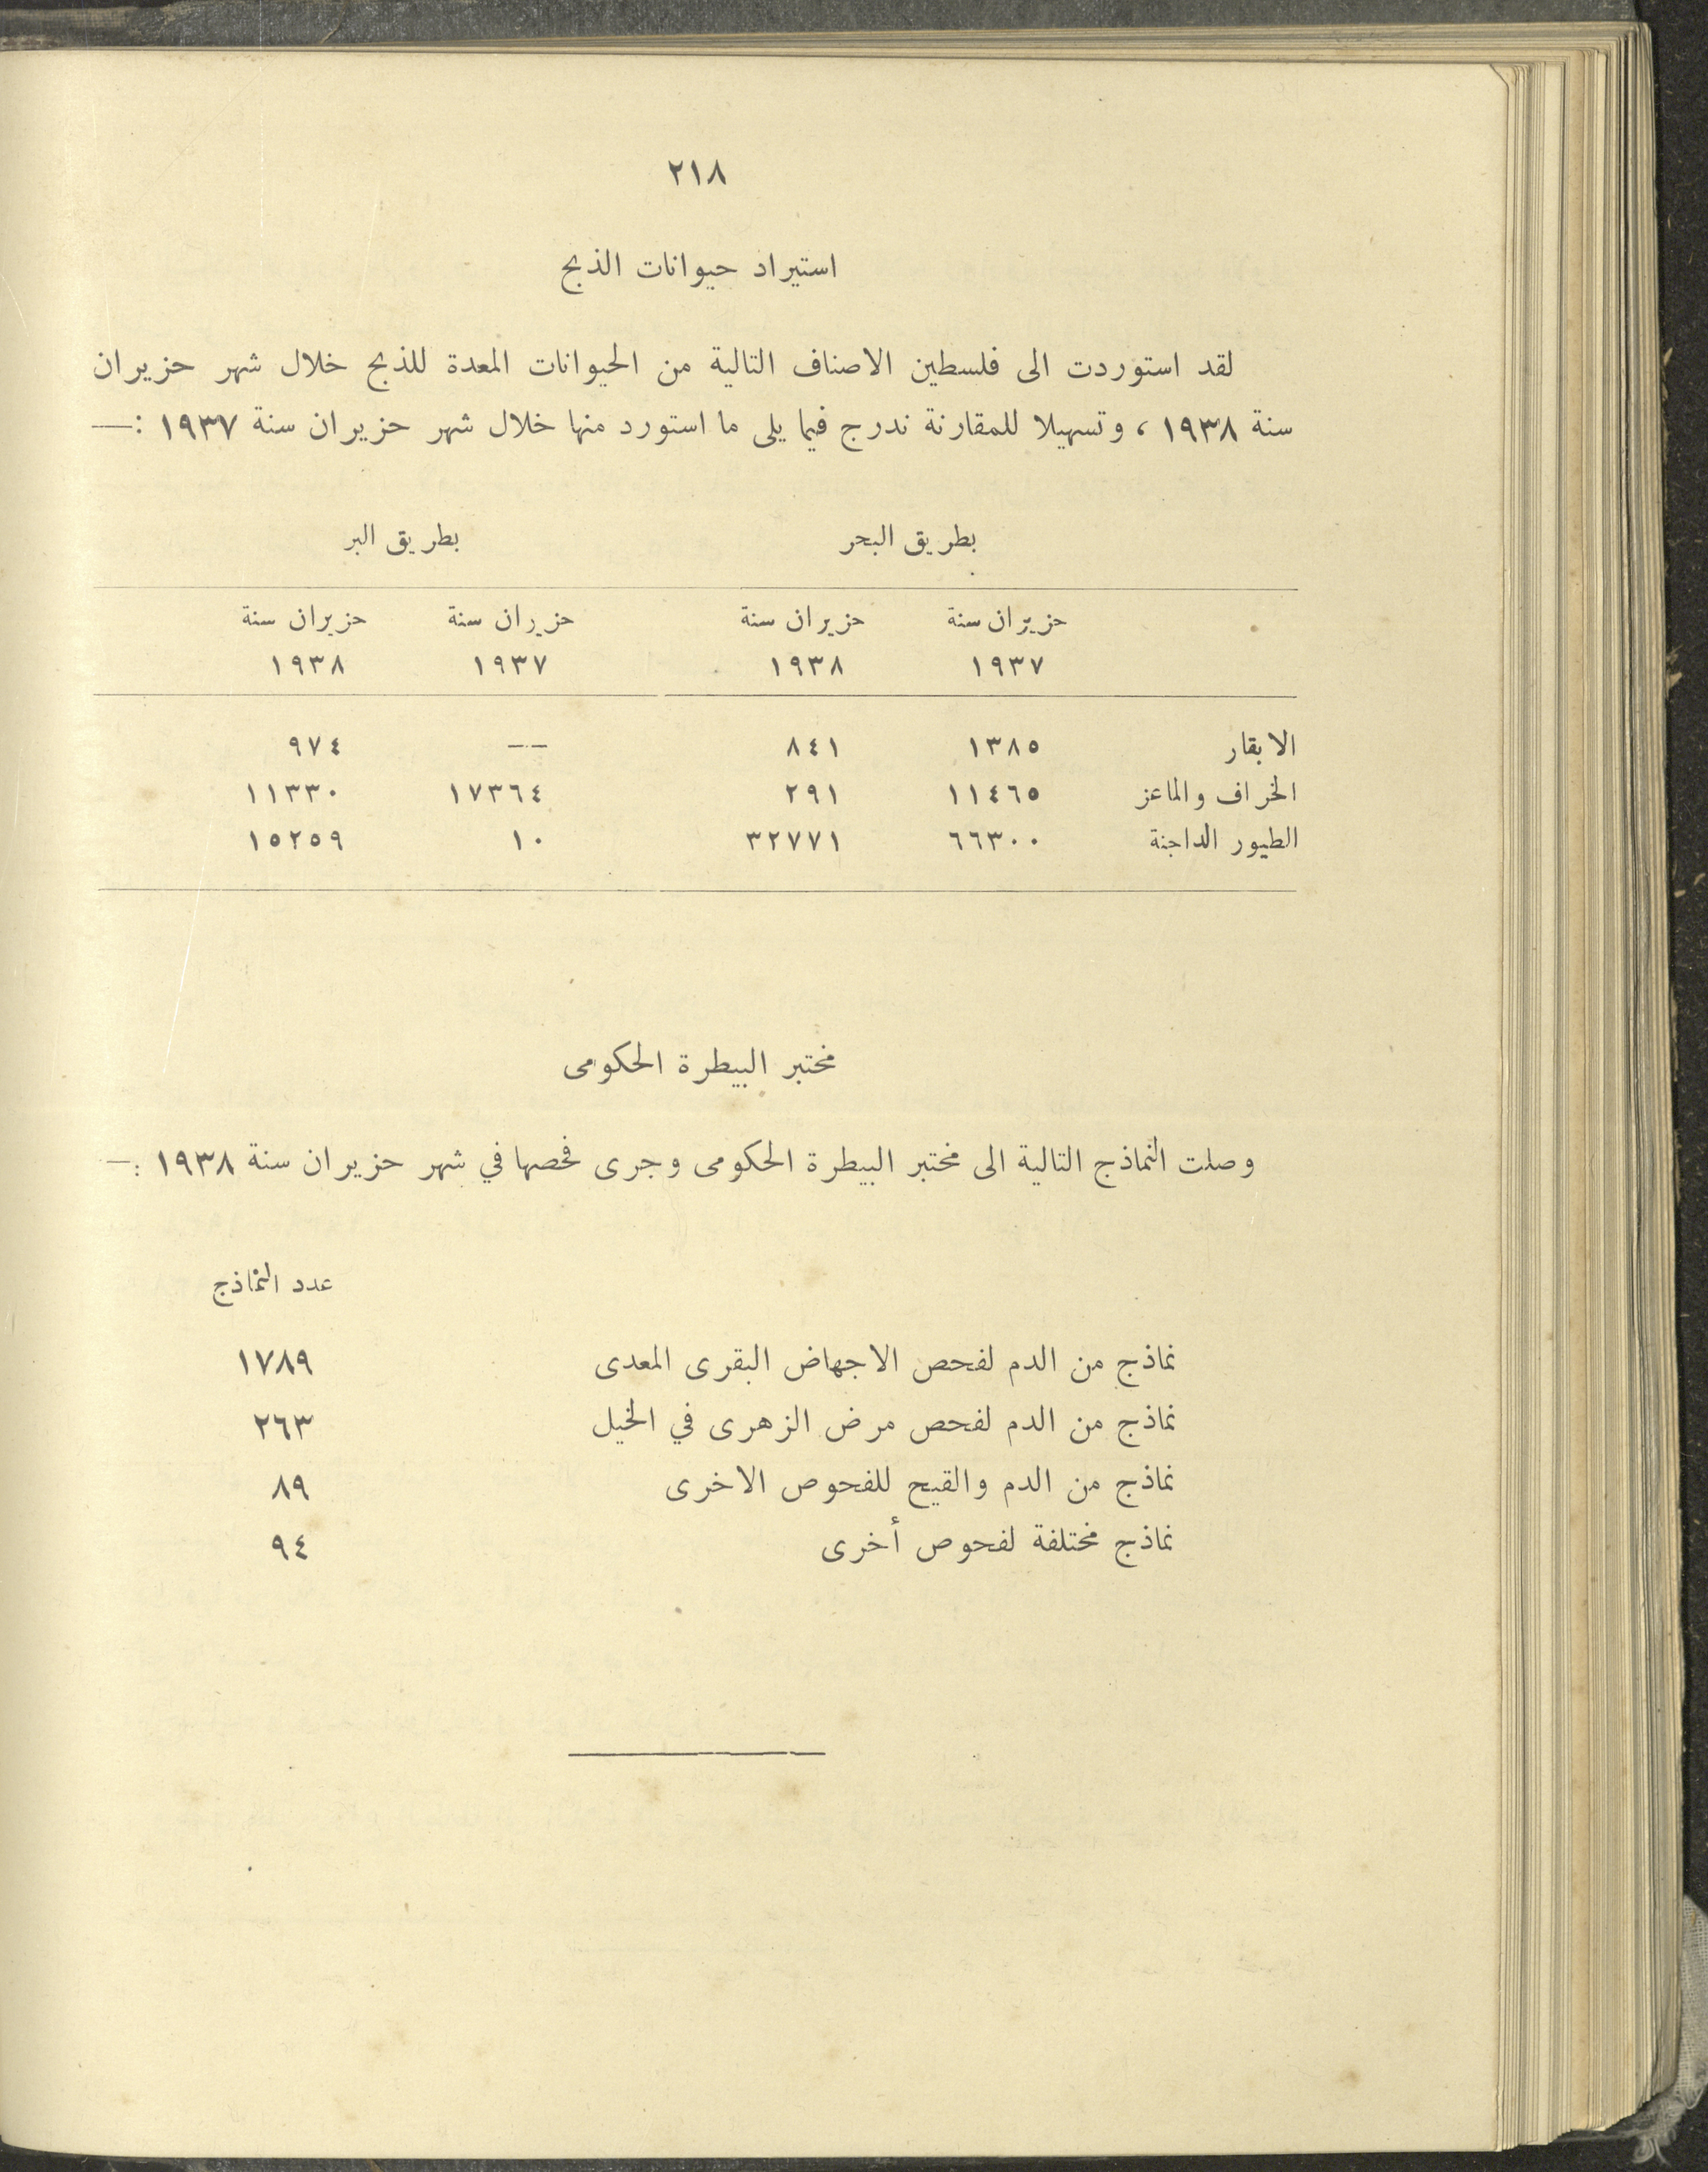 ٢١٨
استيراد حيوانات الذبح
لقد استوردت الى فلسطين الاصناف التالية من الحيوانات المعدة للذبح خلال شهر حزيران
سنة ١٩٣٨ ، وتسهيلا للمقارنة ندرج فيما يلى ما استورد منها خلال شهر حزيران سنة ١٩٣٧ :—
بطريق البحر بطريق البر
حزيران سنة حزيران سنة حزيران سنة حزيران سنة
١٩٣٧ ١٩٣٨ ١٩٣٧ ١٩٣٨
الابقار ١٣٨٥ ٨٤١ — ٩٧٤
الخراف والماعز ١١٤٦٥ ٢٩١ ١٧٣٦٤ ١١٣٣٠
الطيور الداجنة ٦٦٣٠٠ ٣٢٧٧١ ١٠ ١٥٢٥٩
مختبر البيطرة الحكومى
وصلت النماذج التالية الى مختبر البيطرة الحكومى وجرى فحصها في شهر حزيران سنة ١٩٣٨ :—
عدد النماذج
نماذج من الدم لفحص الاجهاض البقرى المعدى ١٧٨٩
نماذج من الدم لفحص مرض الزهرى في الخيل ٢٦٣
نماذج من الدم والقيح للفحوص الاخرى ٨٩
نماذج مختلفة لفحوص أخرى ٩٤